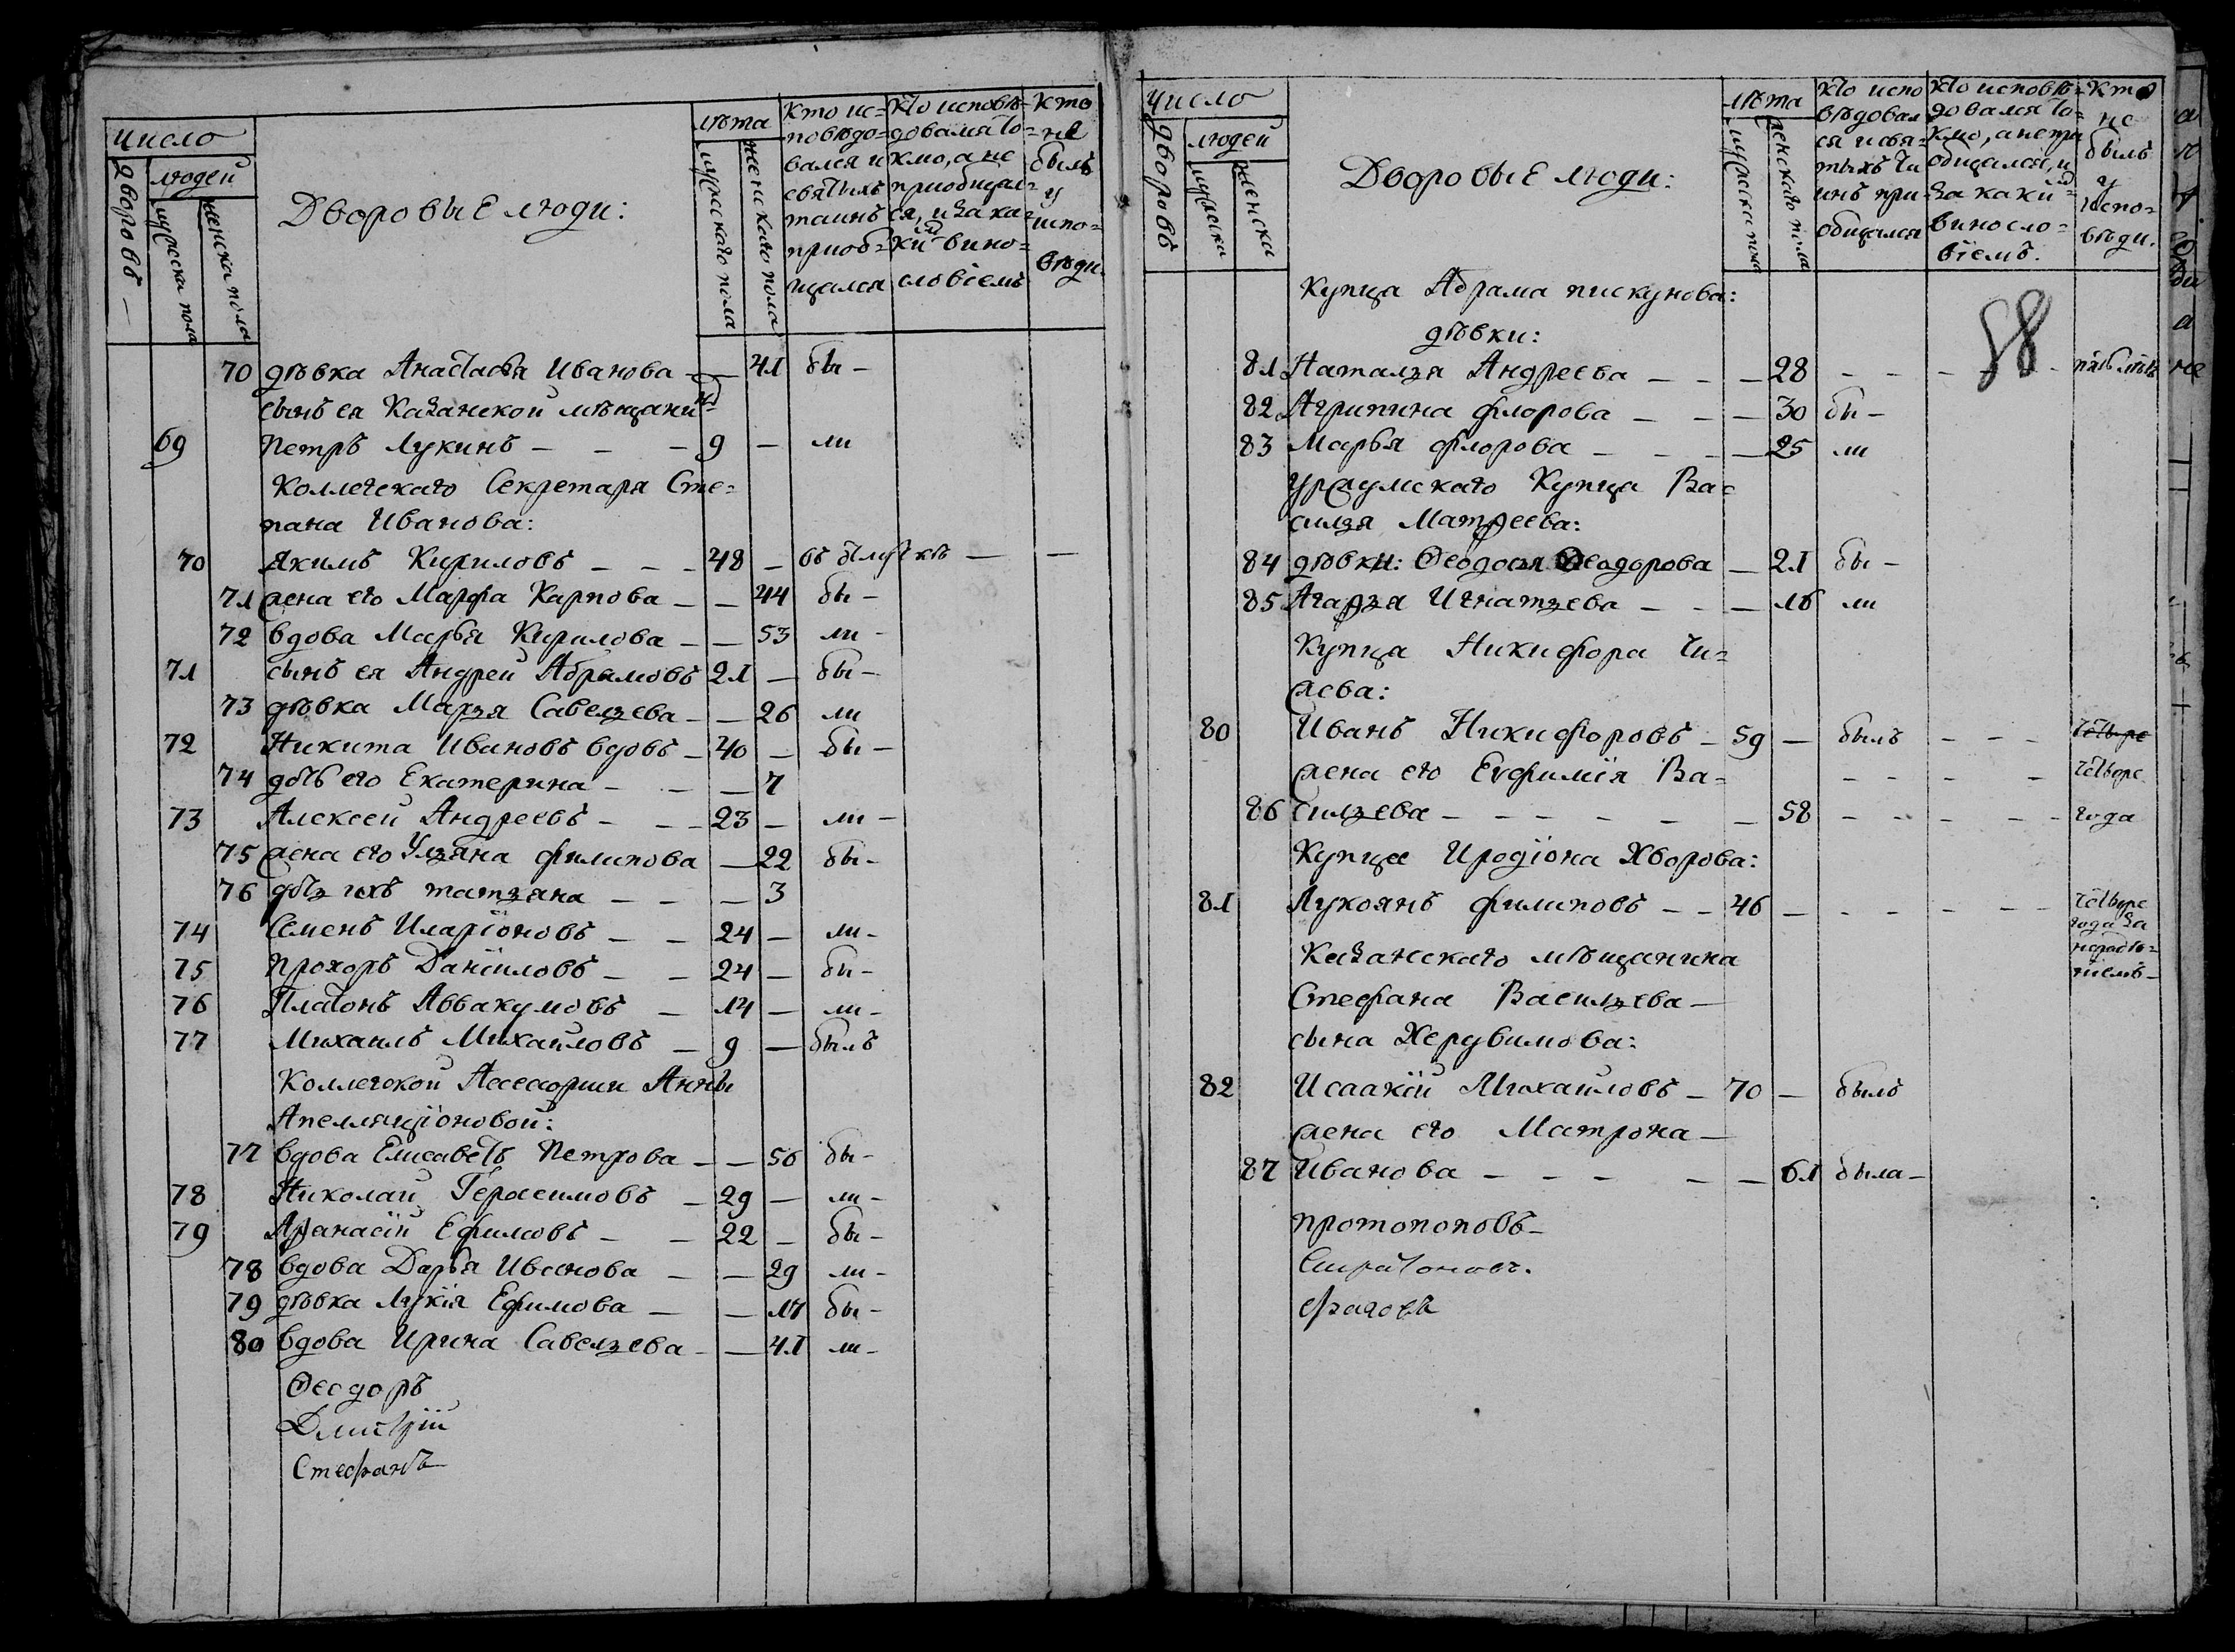 Число
дворовъ
людей
мужеска пола
женска пола
Дворовые люди:
лѣта
мужескаго пола
женскаго пола
Кто ис=
повѣдо=
вался и
святыхъ
таинъ
приоб=
щался
Кто исповѣ=
довался то=
кмо, а не
приобщал=
ся, и за ка=
кимъ вино=
словіемъ
Кто
не
былъ
у
испо=
вѣди.
70 дѣвка Анастасья Иванова — — 41 бы —
сынъ ея Казанской мѣщанинъ
69 Петръ Лукинъ — — — 9 — ли
Коллегскаго Секретаря Сте=
пана Иванова:
70 Якимъ Кириловъ — — — 48 — въ отлучкѣ — —
71 жена его Марфа Карпова — — 44 бы —
72 вдова Марья Кирилова — — 53 ли —
71 сынъ ея Андрей Абрамовъ 21 — бы —
73 дѣвка Марья Савельева — — 26 ли
72 Никита Ивановъ вдовъ — 40 — бы —
74 дочь его Екатерина — — — 7
73 Алексей Андреевъ — — — 23 — ли —
75 жена его Ульяна Филипова — 22 бы —
76 дочь ихъ Татьяна — — — 3
74 Семенъ Иларіоновъ — — 24 — ли —
75 Прохоръ Даніиловъ — — 24 — бы —
76 Платонъ Аввакумовъ — 14 — ли —
77 Михаилъ Михаиловъ — 9 — былъ
Коллегской Асессорши Анны
Апелляціоновой:
77 вдова Елисаветъ Петрова — — 56 бы —
78 Николай Герасимовъ — 29 — ли —
79 Афанасій Ефимовъ — — 22 — бы —
78 вдова Дарья Иванова — — 29 ли —
79 дѣвка Лукія Ефимова — — 17 бы —
80 вдова Ирина Савельева — — 41 ли —
Ѳеодоръ
Дмитрій
Стефанъ
Число
дворовъ
людей
мужеска
женска
Дворовые люди:
лѣта
мужеска пола
женскаго пола
Кто испо
вѣдовал
ся и свя=
тыхъ та
инъ при=
общался
Кто исповѣ=
довался то=
кмо, а не при
общался, и
за какимъ
виносло=
віемъ.
Кто
не
былъ
у
испо=
вѣди.
88
Купца Абрама Пискунова:
дѣвки:
81 Наталья Андреева — — — 28 — — — — пять лѣтъ
82 Агрипина Флорова — — — 30 бы —
83 Марья Флорова — — — — 25 ли
Уржумскаго Купца Ва=
силья Матфеева:
84 дѣвки: Ѳеодосья Ѳеодорова — 21 бы —
85 Агафья Игнатьева — — — 16 ли
Купца Никифора Чи=
жева:
80 Иванъ Никифоровъ — 59 — былъ — — — четыре
жена его Евфимія Ва= — — — — четыре
86 сильева — — — — — — 58 — — — — — года
Купца Иродіона Хворова:
81 Лукоянъ Филиповъ — — 46 — — — — — — четыре
года за
нерадѣ=
ніемъ —
Казанскаго мѣщанина
Стефана Васильева —
сына Херувимова:
82 Исаакій Михаиловъ — 70 — былъ
жена его Матрона —
87 Иванова — — — — — 61 была —
Протопоповъ —